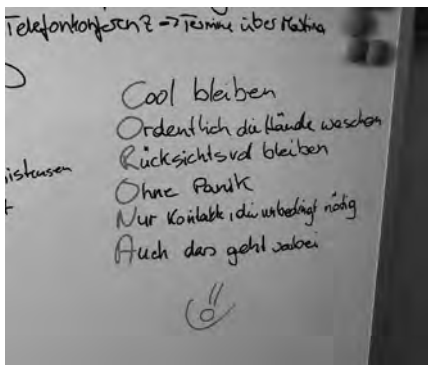 Telefonkonferenz => Termine über Martina
Cool bleiben
Ordentlich die Hände waschen
Rücksichtsvol bleiben
Ohne Panik
Nur Kontakte, die unbedingt nötig
Auch das geht vorbei